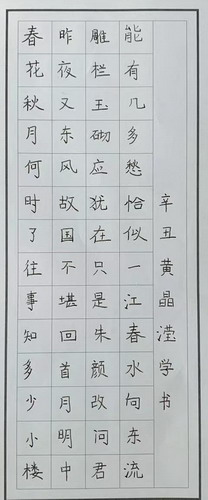 春花秋月何时了往事知多少小楼
昨夜又东风故国不堪回首月明中
雕栏玉砌应犹在只是朱颜改问君
能有几多愁恰似一江春水向东流
辛丑黄晶滢学书